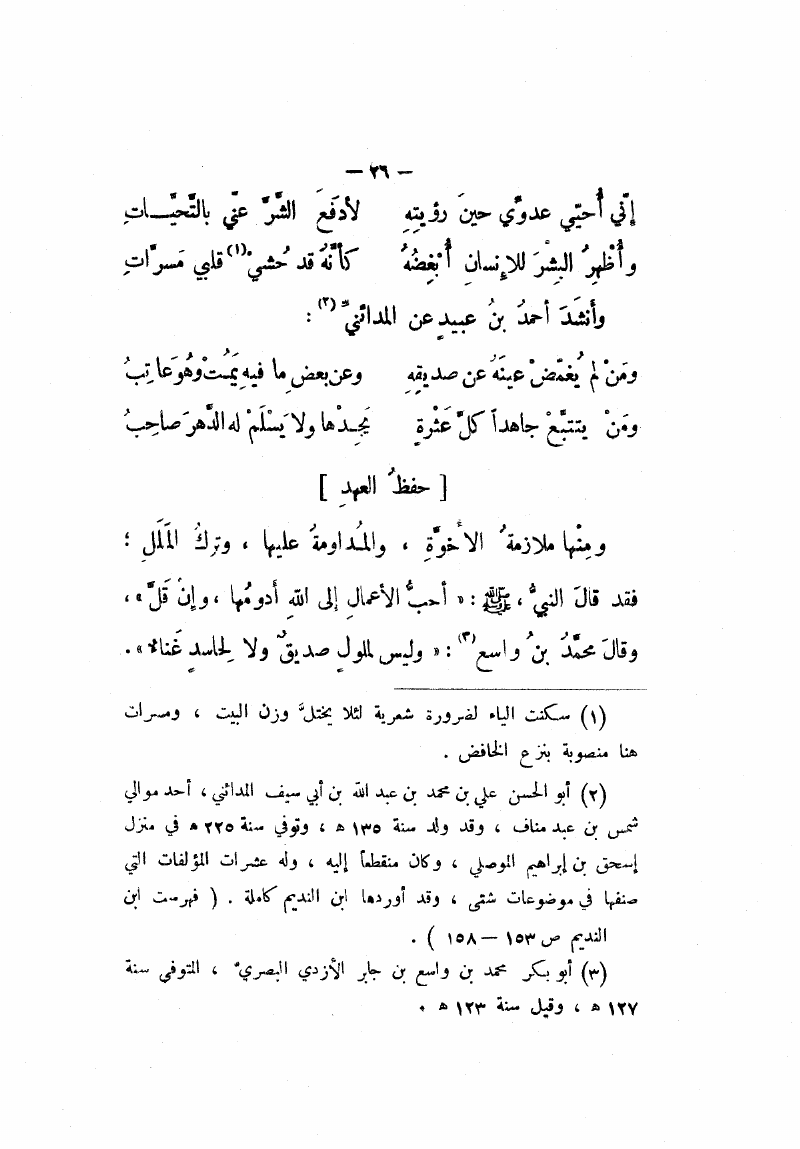 — ٣٦ —
إنّي أُحَيّي عدوّي حينَ رؤيتِهِ لأدفَعَ الشَّرَّ عنّي بالتَّحيَّـــاتِ
وأُظْهِرُ البِشْرَ للإنسانِ أُبْغِضُهُ كأنَّهُ قد حُشيْ(١) قلبي مَسرَّاتِ
وأنشَدَ أحمدُ بنُ عبيدٍ عن المدائنيِّ(٢) :
ومَنْ لم يُغمّضْ عينَهُ عن صديقِهِ وعن بعضِ ما فيه يَمُتْ وهُوَ عاتِبُ
ومَنْ يتتبَّعْ جاهداً كلَّ عَثْرةٍ يَجِدْها ولا يَسْلَمْ له الدَّهرَ صاحِبُ
[ حفظُ العهدِ ]
ومِنْها ملازمةُ الأُخوَّةِ ، والمُداومةُ عليها ، وتركُ المَلَلِ ؛
فقد قالَ النبيُّ ، ﷺ : « أحبُّ الأعمالِ إلى اللهِ أدومُها ، وإنْ قلَّ » ،
وقالَ محمَّدُ بنُ واسعٍ(٣) : « وليس لملولٍ صديقٌ ولا لِحاسدٍ غَناءٌ » .
(١) سكنت الياء لضرورة شعرية لئلا يختلَّ وزن البيت ، ومسرات
هنا منصوبة بنزع الخافض .
(٢) أبو الحسن علي بن محمد بن عبد الله بن أبي سيف المدائني ، أحد موالي
شمس بن عبد مناف ، وقد ولد سنة ١٣٥ ه ، وتوفي سنة ٢٢٥ ه في منزل
إسحق بن إبراهيم الموصلي ، وكان منقطعاً إليه ، وله عشرات المؤلفات التي
صنفها في موضوعات شتى ، وقد أوردها ابن النديم كاملة . ( فهرست ابن
النديم ص ١٥٣ — ١٥٨ ) .
(٣) أبو بكر محمد بن واسع بن جابر الأزدي البصريّ ، المتوفى سنة
١٢٧ ه ، وقيل سنة ١٢٣ ه .